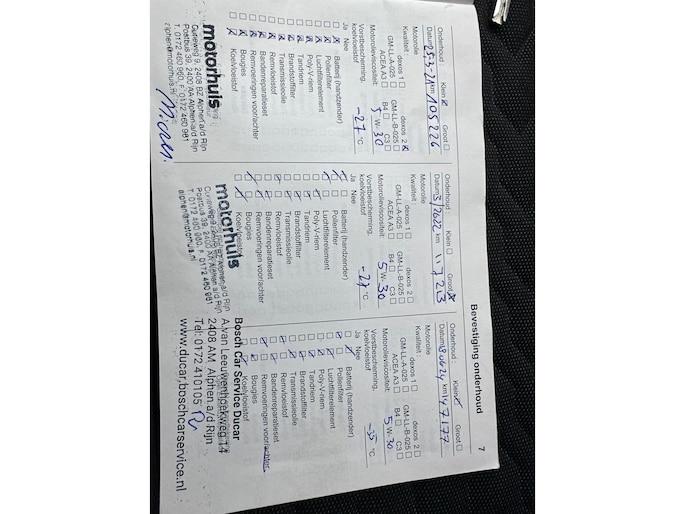 Bevestiging onderhoud
7
Onderhoud: Klein ☒ Groot ☐
Datum 25-3-21 km 105226
Motorolie
Kwaliteit: dexos 1 ☐ dexos 2 ☒
GM-LL-A-025 ☐ GM-LL-B-025 ☐
ACEA A3 ☐ B4 ☐ C3 ☐
Motorolieviscositeit: 5 W-30
Vorstbescherming,
koelvloeistof -27 °C
Ja Nee
Batterij (handzender)
Pollenfilter
Luchtfilterelement
Poly-V-riem
Tandriem
Brandstoffilter
Transmissieolie
Remvloeistof
Bandenreparatieset
Remvoeringen voor/achter
Bougies
Koelvloeistof
motorhuis
Oureweg 9, 2408 BZ Alphen a/d Rijn
Postbus 39, 2400 AA Alphen a/d Rijn
T. 0172 460 960, F. 0172 460 961
alphen@motorhuis.nl
Onderhoud: Klein ☐ Groot ☒
Datum 3/2022 km 117213
Motorolie
Kwaliteit: dexos 1 ☐ dexos 2 ☐
GM-LL-A-025 ☐ GM-LL-B-025 ☐
ACEA A3 ☐ B4 ☐ C3 ☐
Motorolieviscositeit: 5 W-30
Vorstbescherming,
koelvloeistof -27 °C
Ja Nee
Batterij (handzender)
Pollenfilter
Luchtfilterelement
Poly-V-riem
Tandriem
Brandstoffilter
Transmissieolie
Remvloeistof
Bandenreparatieset
Remvoeringen voor/achter
Bougies
Koelvloeistof
motorhuis
Oureweg 9, 2408 BZ Alphen a/d Rijn
Postbus 39, 2400 AA Alphen a/d Rijn
T. 0172 460 960, F. 0172 460 961
alphen@motorhuis.nl
Onderhoud: Klein ☒ Groot ☐
Datum km 147177
Motorolie
Kwaliteit: dexos 1 ☐ dexos 2 ☐
GM-LL-A-025 ☐ GM-LL-B-025 ☐
ACEA A3 ☐ B4 ☐ C3 ☐
Motorolieviscositeit: 5 W-30
Vorstbescherming,
koelvloeistof -35 °C
Ja Nee
Batterij (handzender)
Pollenfilter
Luchtfilterelement
Poly-V-riem
Tandriem
Brandstoffilter
Transmissieolie
Remvloeistof
Bandenreparatieset
Remvoeringen voor/achter
Bougies
Koelvloeistof
Bosch Car Service Ducar
A.van Leeuwenhoekweg 14
2408 AM Alphen a/d Rijn
Tel: 0172 410105
www.ducar.boschcarservice.nl